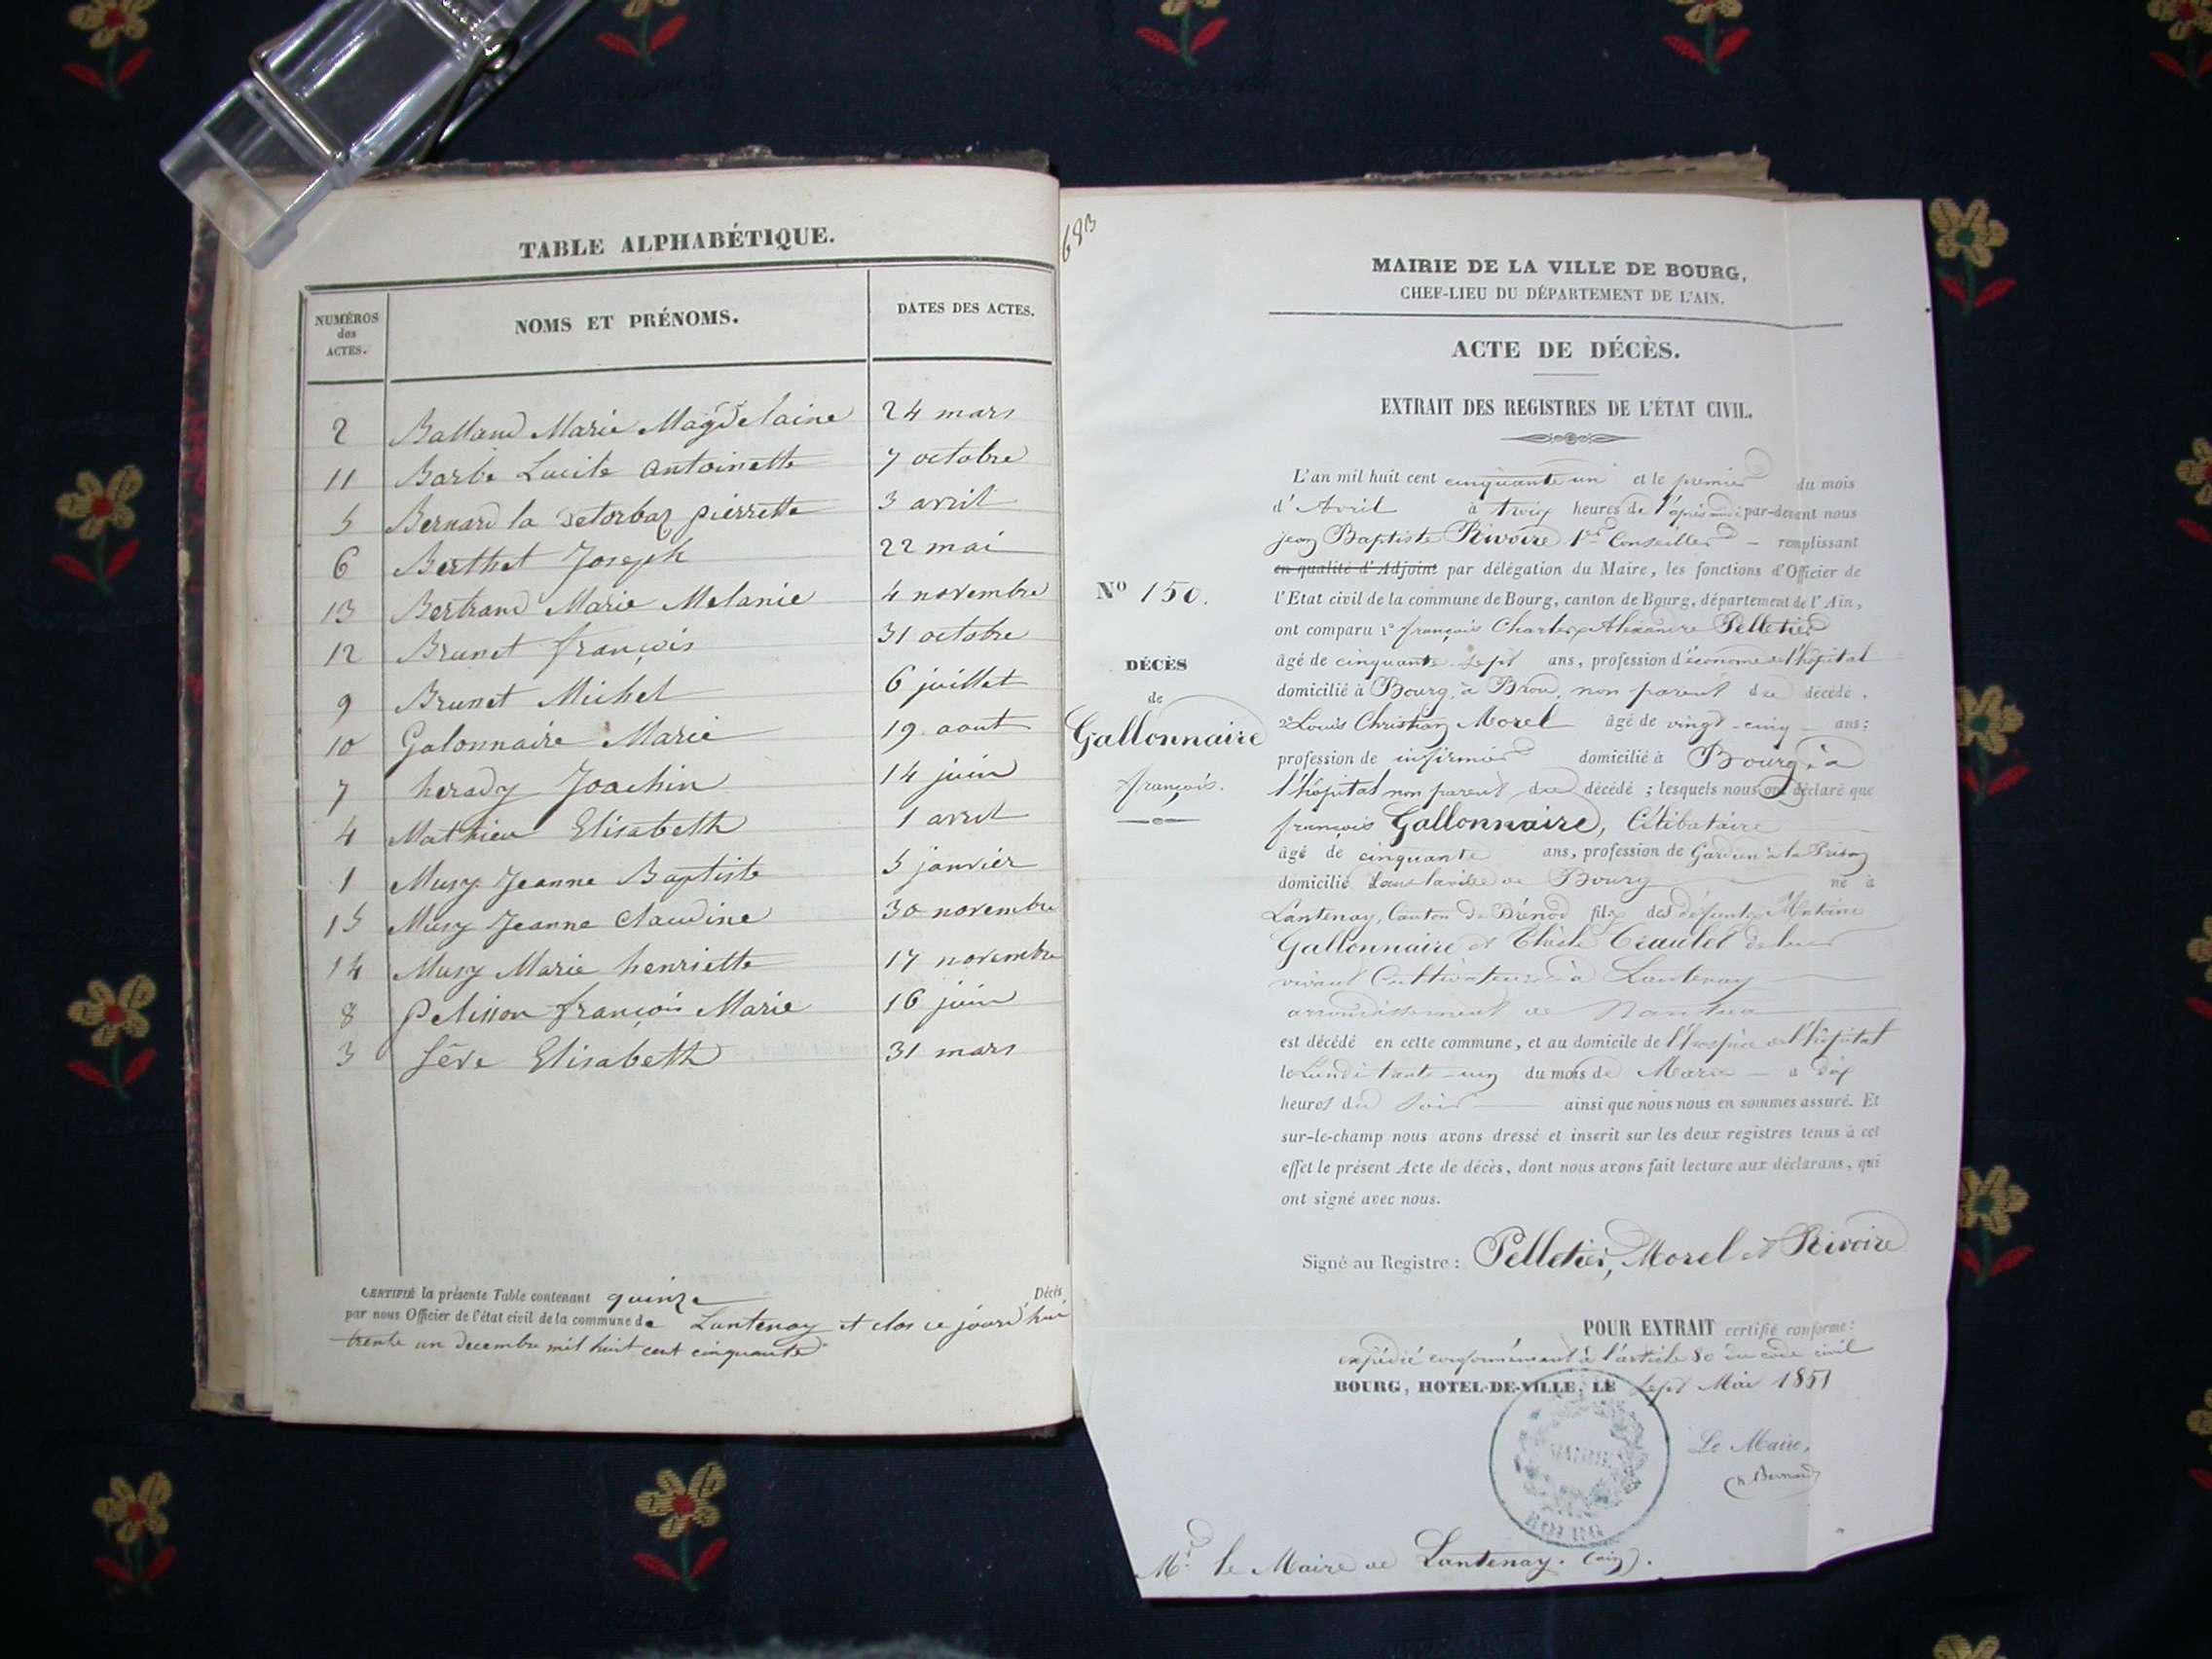 TABLE ALPHABÉTIQUE.
NUMÉROS des ACTES. NOMS ET PRÉNOMS. DATES DES ACTES.
2 Balland Marie Magdelaine 24 mars
11 Barbe Lucile Antoinette 7 octobre
5 Bernard la Delorbaz pierrette 3 avril
6 Berthet Joseph 22 mai
13 Bertrand Marie Melanie 4 novembre
12 Brunet françois 31 octobre
9 Brunet Michel 6 juillet
10 Galonnaire Marie 19 aout
7 herady Joachin 14 juin
4 Mathieu Elisabeth 1 avril
1 Musy Jeanne Baptiste 5 janvier
15 Musy Jeanne Claudine 30 novembre
14 Musy Marie henriette 17 novembre
8 Pelisson françois Marie 16 juin
3 Sève Elisabeth 31 mars
CERTIFIÉ la présente Table contenant quinze Décès
par nous Officier de l'état civil de la commune de Lantenay et clos ce jourd'hui
trente un decembre mil huit cent cinquante
683
MAIRIE DE LA VILLE DE BOURG,
CHEF-LIEU DU DÉPARTEMENT DE L'AIN.
ACTE DE DÉCÈS.
EXTRAIT DES REGISTRES DE L'ÉTAT CIVIL.
N° 150.
DÉCÈS
de
Gallonnaire
françois.
L'an mil huit cent cinquante un et le premier du mois
d'Avril à trois heures de l'après midi par-devant nous
jean Baptiste Rivoire 1er Conseiller remplissant
en qualité d'Adjoint par délégation du Maire, les fonctions d'Officier de
l'Etat civil de la commune de Bourg, canton de Bourg, département de l'Ain,
ont comparu 1° françois Charles Alexandre Pelletier
âgé de cinquante-sept ans, profession d'économe de l'hôpital
domicilié à Bourg, à Brou, non parent du décédé,
2° Louis Christian Morel âgé de vingt-cinq ans;
profession de infirmier domicilié à Bourg, à
l'hôpital non parent du décédé; lesquels nous ont déclaré que
françois Gallonnaire, Célibataire
âgé de cinquante ans, profession de Gardien à la Prison
domicilié dans la ville de Bourg né à
Lantenay, Canton de Brénod fils des défunts Antoine
Gallonnaire et de leur
vivant Cultivateurs à Lantenay
arrondissement de Nantua
est décédé en cette commune, et au domicile de l'hospice de l'hôpital
le Lundi trente-un du mois de Mars à dix
heures du soir ainsi que nous nous en sommes assuré. Et
sur-le-champ nous avons dressé et inscrit sur les deux registres tenus à cet
effet le présent Acte de décès, dont nous avons fait lecture aux déclarans, qui
ont signé avec nous.
Signé au Registre: Pelletier, Morel et Rivoire
POUR EXTRAIT certifié conforme:
expédié conformément à l'article 80 du code civil
BOURG, HOTEL-DE-VILLE, LE sept Mai 1851
Le Maire,
Bernard
MAIRIE
BOURG
Mr le Maire de Lantenay. (ain).